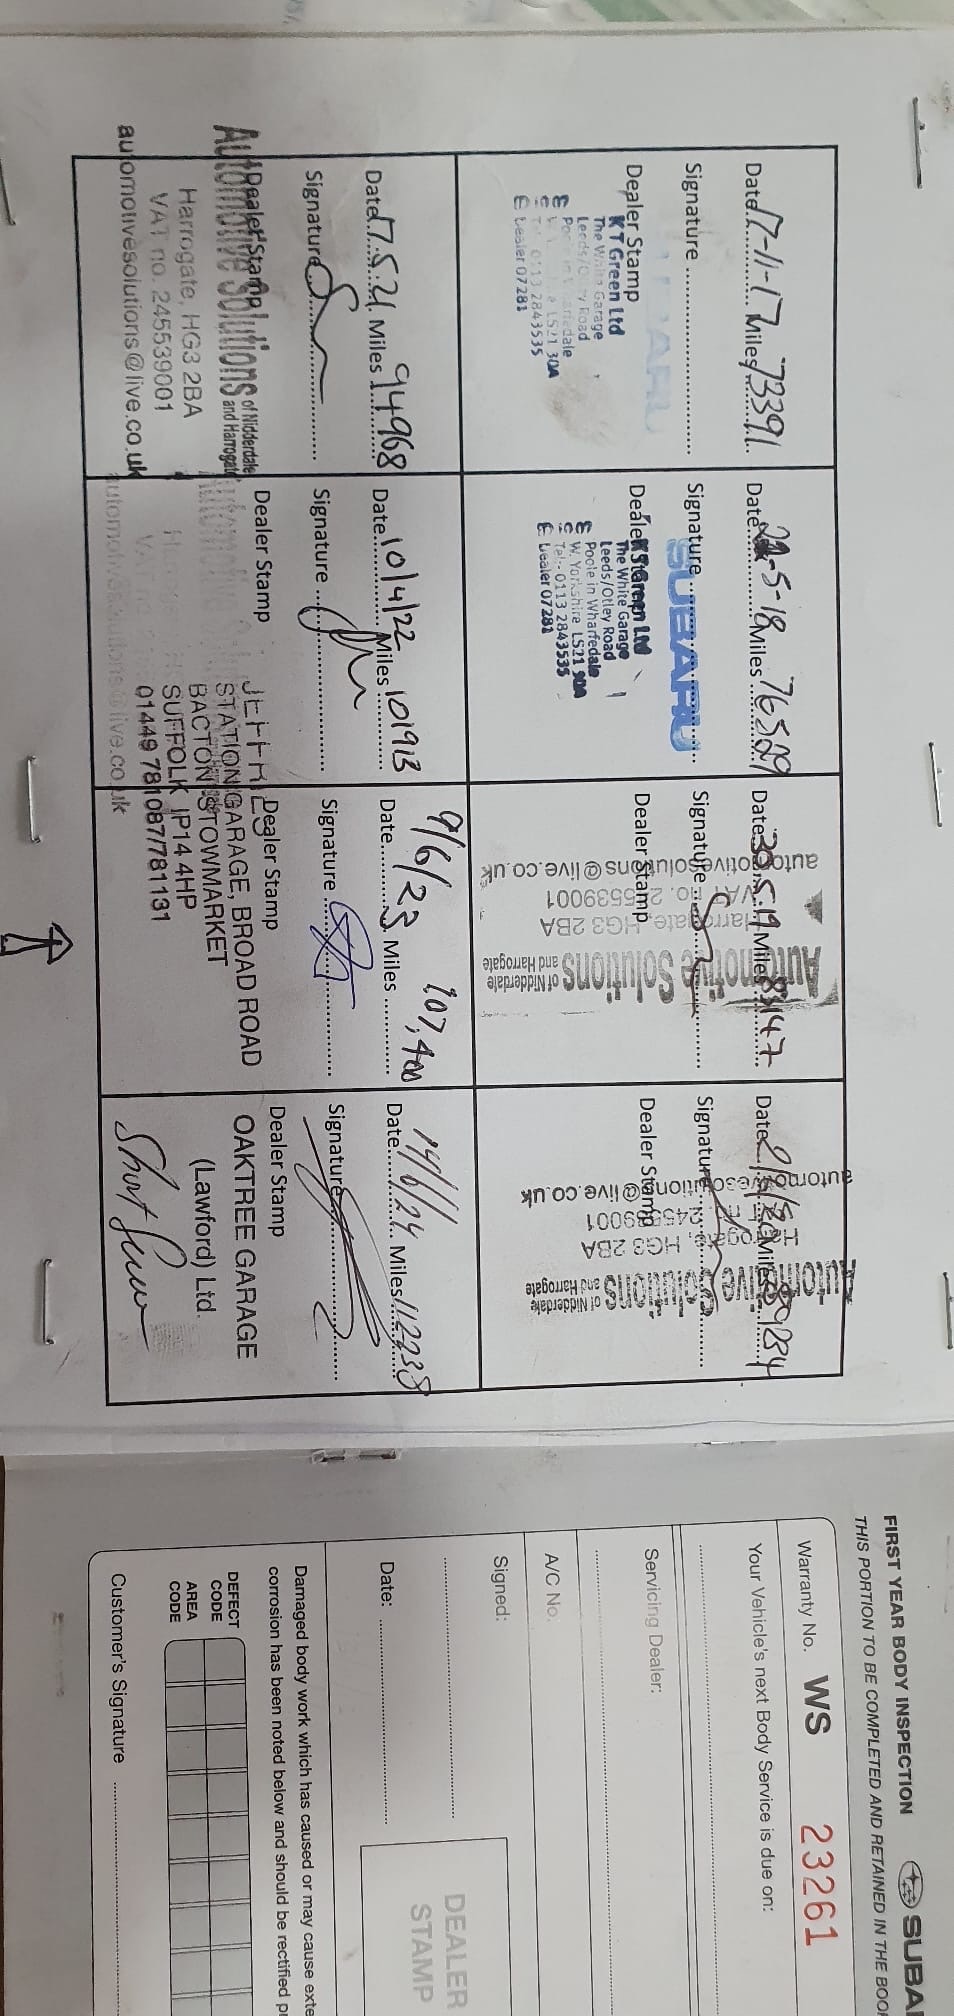 Date 17-11-17 Miles 73391
Signature
Dealer Stamp
SUBARU
KT Green Ltd
The White Garage
Leeds/Otley Road
LS21
0113 2843535
Dealer 07281
Date 22-5-18 Miles 76529
Signature
SUBARU
Dealer
The White Garage
Leeds/Otley Road
Poole in Wharfedale
W. Yorkshire LS21
Tel: 0113 2843535
Dealer 07281
Date 30.5.19 Miles
Signature
Dealer Stamp
Automotive Solutions
of Nidderdale
and Harrogate
Harrogate, HG3 2BA
VAT no. 245539001
automotivesolutions@live.co.uk
Date Miles
Signature
Dealer Stamp
Automotive Solutions
of Nidderdale
and Harrogate
Harrogate, HG3 2BA
automotivesolutions@live.co.uk
Date 17.5.21 Miles 94968
Signature
Dealer Stamp
Automotive Solutions
of Nidderdale
and Harrogate
Harrogate, HG3 2BA
VAT no. 245539001
automotivesolutions@live.co.uk
Date 10/4/22 Miles 101913
Signature
Dealer Stamp
STATION GARAGE, BROAD ROAD
BACTON STOWMARKET
SUFFOLK IP14 4HP
01449 781087/781131
Date 9/6/23 Miles 107,400
Signature
Dealer Stamp
Date 14/6/24 Miles 112238
Signature
Dealer Stamp
OAKTREE GARAGE
(Lawford) Ltd.
SUBA
FIRST YEAR BODY INSPECTION
THIS PORTION TO BE COMPLETED AND RETAINED IN THE BOO
Warranty No. WS 23261
Your Vehicle's next Body Service is due on:
Servicing Dealer:
A/C No.
Signed:
Date:
DEALER
STAMP
Damaged body work which has caused or may cause exte
corrosion has been noted below and should be rectified p
DEFECT
CODE
AREA
CODE
Customer's Signature